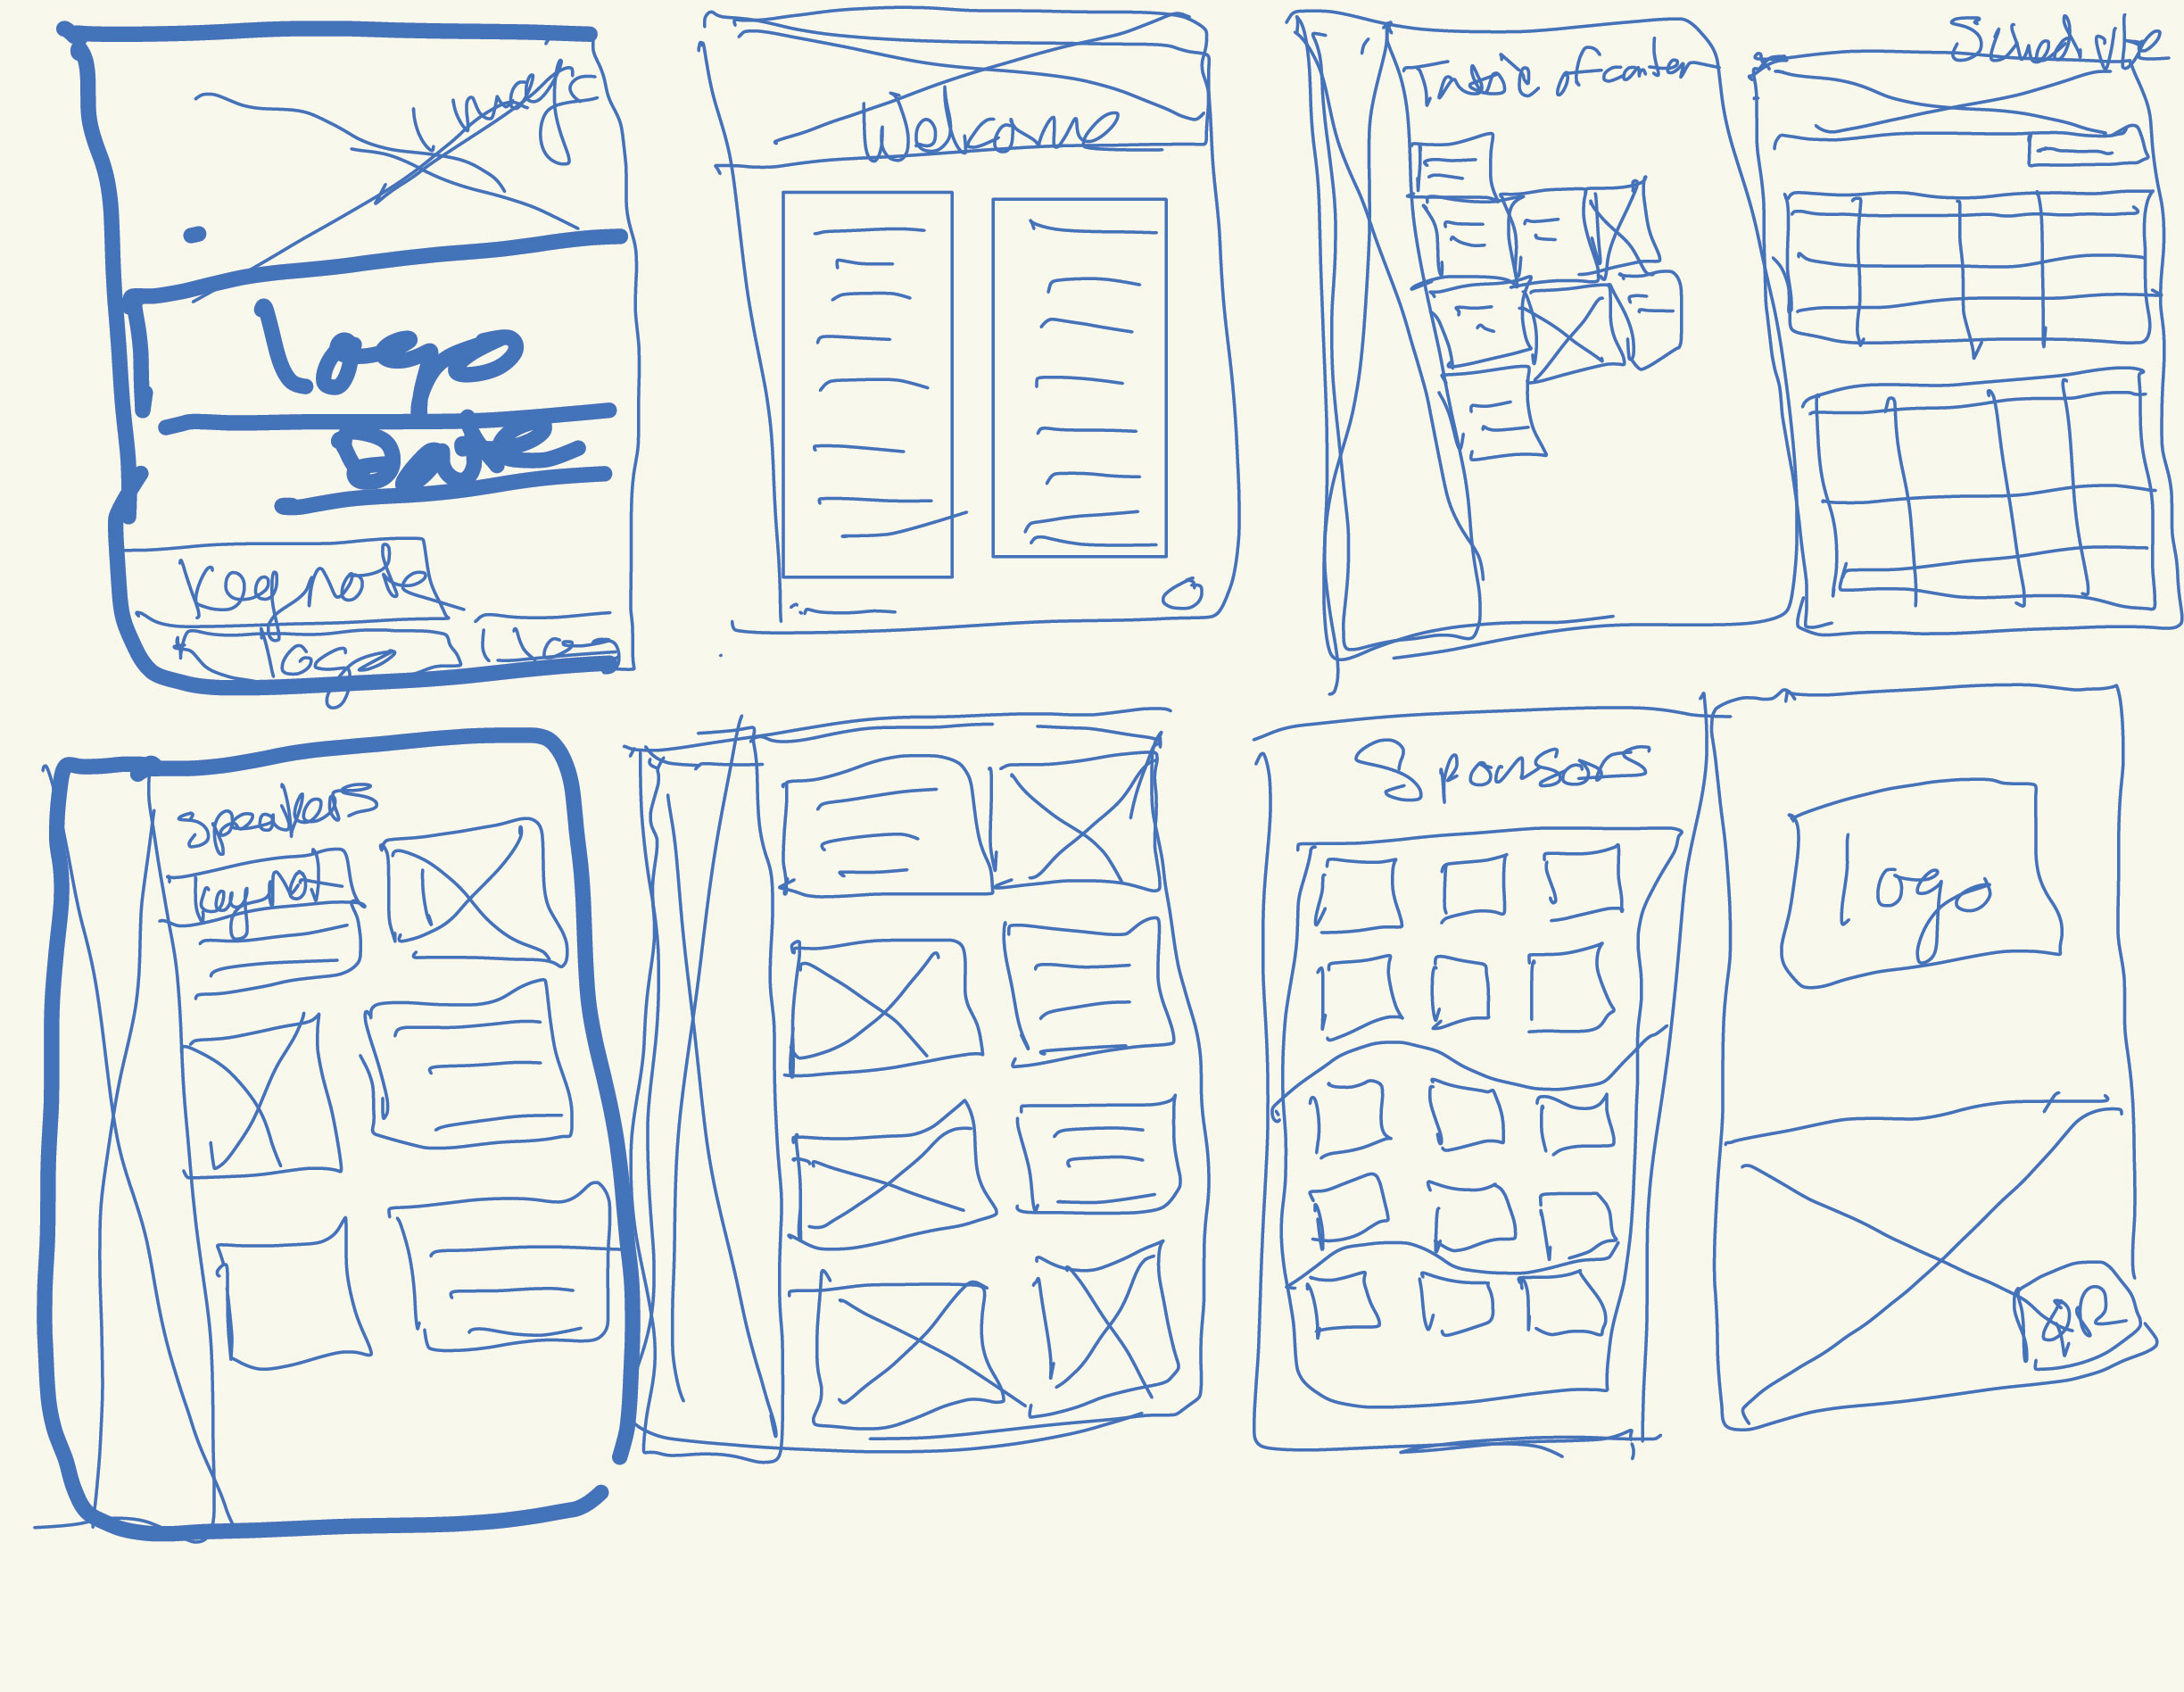 Image
Logo
Date
Keynote
Logo
Welcome
Table of content
Schedule
Speakers
Keynot
Sponsors
Logo
QR